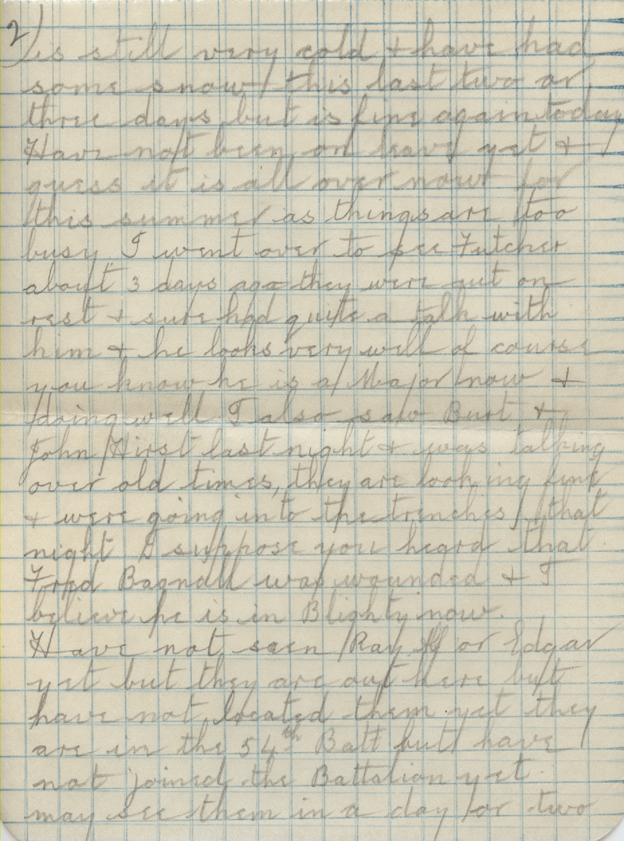 2) is still very cold & have had
some snow this last two or
three days but is fine again today
Have not been on leave yet & I
guess it is all over now for
this summer as things are too
busy. I went over to see Futcher
about 3 days ago they were out on
rest & sure had quite a talk with
him & he looks very well of course
you know he is a Major now &
doing well I also saw Burt &
John Hirst last night & was talking
over old times, they are looking fine
& were going into the trenches that
night I suppose you heard that
Fred Bagnall was wounded & I
believe he is in Blighty now.
Have not seen Ray or Edgar
yet but they are out here but
have not located them yet they
are in the 54th Batt but have
not joined the Battalion yet.
may see them in a day or two